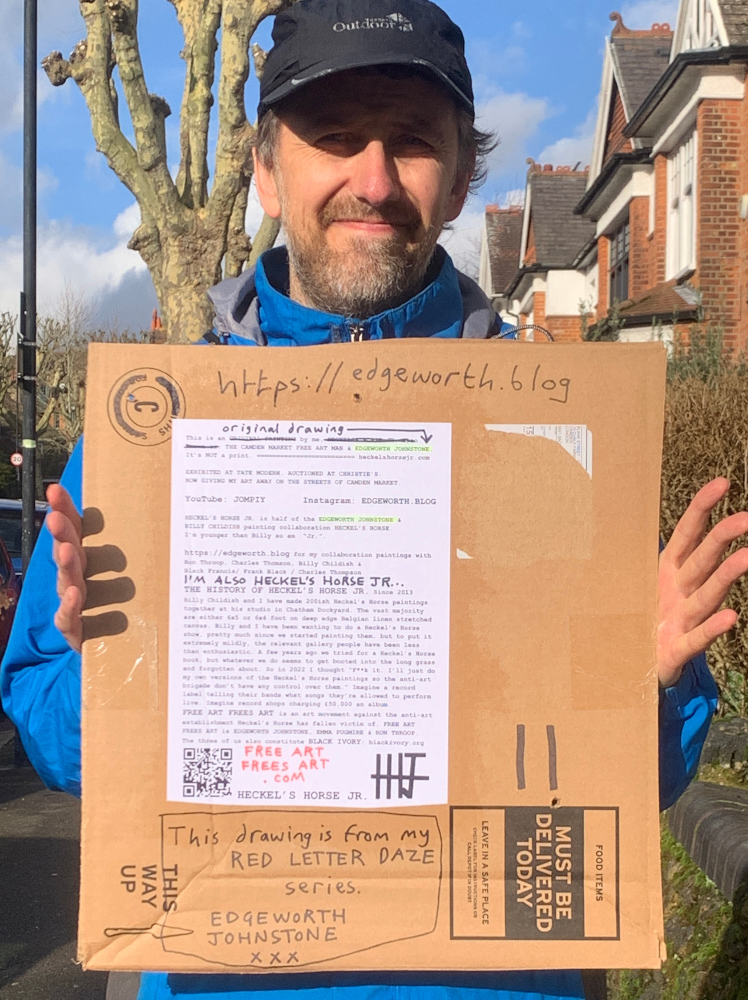 Outdoor
https://edgeworth.blog
C
THIS
original drawing
This is an ORIGINAL PAINTING by me,
THE CAMDEN MARKET FREE ART MAN & EDGEWORTH JOHNSTONE.
It's NOT a print. heckelshorsejr.com
EXHIBITED AT TATE MODERN. AUCTIONED AT CHRISTIE'S.
NOW GIVING MY ART AWAY ON THE STREETS OF CAMDEN MARKET.
YouTube: JOMPIY Instagram: EDGEWORTH.BLOG
HECKEL'S HORSE JR. is half of the EDGEWORTH JOHNSTONE &
BILLY CHILDISH painting collaboration HECKEL'S HORSE.
I'm younger than Billy so am "Jr.".
https://edgeworth.blog for my collaboration paintings with
Ron Throop, Charles Thomson, Billy Childish &
Black Francis/ Frank Black / Charles Thompson
I'M ALSO HECKEL'S HORSE JR...
THE HISTORY OF HECKEL'S HORSE JR. Since 2013
Billy Childish and I have made 200ish Heckel's Horse paintings
together at his studio in Chatham Dockyard. The vast majority
are either 6x5 or 6x4 foot on deep edge Belgian linen stretched
canvas. Billy and I have been wanting to do a Heckel's Horse
show, pretty much since we started painting them, but to put it
extremely mildly, the relevant gallery people have been less
than enthusiastic. A few years ago we tried for a Heckel's Horse
book, but whatever we do seems to get booted into the long grass
and forgotten about. So in 2022 I thought "F**k it. I'll just do
my own versions of the Heckel's Horse paintings so the anti-art
brigade don't have any control over them." Imagine a record
label telling their bands what songs they're allowed to perform
live. Imagine record shops charging £30,000 an album.
FREE ART FREES ART is an art movement against the anti-art
establishment Heckel's Horse has fallen victim of. FREE ART
FREES ART is EDGEWORTH JOHNSTONE, EMMA PUGMIRE & RON THROOP.
The three of us also constitute BLACK IVORY: blackivory.org
FREE ART
FREES ART
.COM
HECKEL'S HORSE JR.
This drawing is from my
RED LETTER DAZE
series.
EDGEWORTH
JOHNSTONE
xxx
THIS
WAY
UP
FOOD ITEMS
MUST BE
DELIVERED
TODAY
LEAVE IN A SAFE PLACE
20